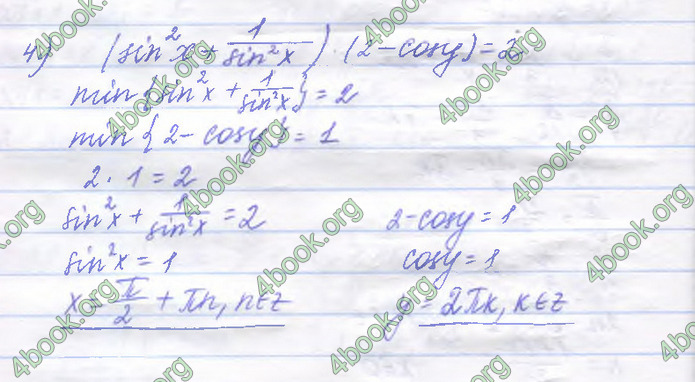 4) (sin²x + 1/sin²x) · (2 - cosy) = 2
min {sin²x + 1/sin²x} = 2
min {2 - cosy} = 1
2 · 1 = 2
sin²x + 1/sin²x = 2
2 - cosy = 1
sin²x = 1
cosy = 1
x = π/2 + πn, n∈z
y = 2πk, k∈z
4book.org
4book.org
4book.org
4book.org
4book.org
4book.org
4book.org
4book.org
4book.org
4book.org